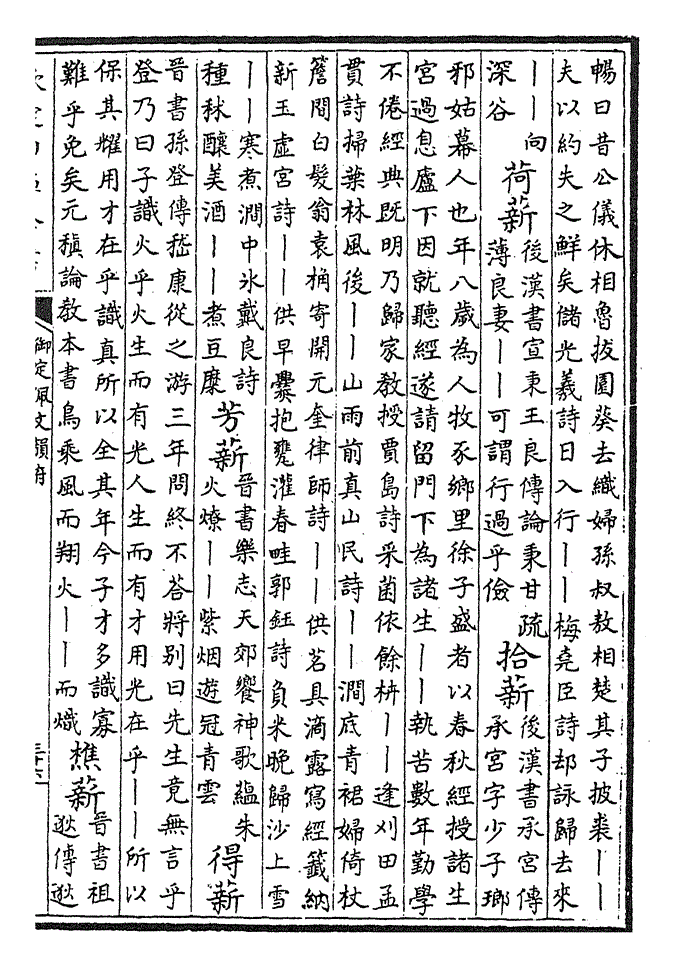 暢曰昔公儀休相魯拔園葵去織婦孫叔敖相楚其子披裘——
夫以約失之鮮矣儲光羲詩日入行——梅堯臣詩却詠歸去來
——向
深谷
荷薪
後漢書宣秉王良傳論秉甘疏
薄良妻——可謂行過乎儉
拾薪
後漢書承宮傳
承宮字少子瑯
邪姑幕人也年八歲為人牧豕鄉里徐子盛者以春秋經授諸生
宮過息廬下因就聽經遂請留門下為諸生——執苦數年勤學
不倦經典既明乃歸家教授賈島詩采菌依餘枿——逢刈田孟
貫詩掃葉林風後——山雨前真山民詩——澗底青裙婦倚杖
簷間白髮翁袁桷寄開元奎律師詩——供茗具滴露寫經籤納
新玉虛宮詩——供早爨抱甕灌春畦郭鈺詩負米晚歸沙上雪
——寒煮澗中氷戴良詩
種秫釀美酒——煮豆糜
芳薪
晉書樂志天郊饗神歌蘊朱
火燎——紫烟遊冠青雲
得薪
晉書孫登傳嵇康從之游三年問終不荅將別曰先生竟無言乎
登乃曰子識火乎火生而有光人生而有才用光在乎——所以
保其耀用才在乎識真所以全其年今子才多識寡
難乎免矣元稹論教本書烏乘風而翔火——而熾
樵薪
晉書祖
逖傳逖
御定佩文韻府